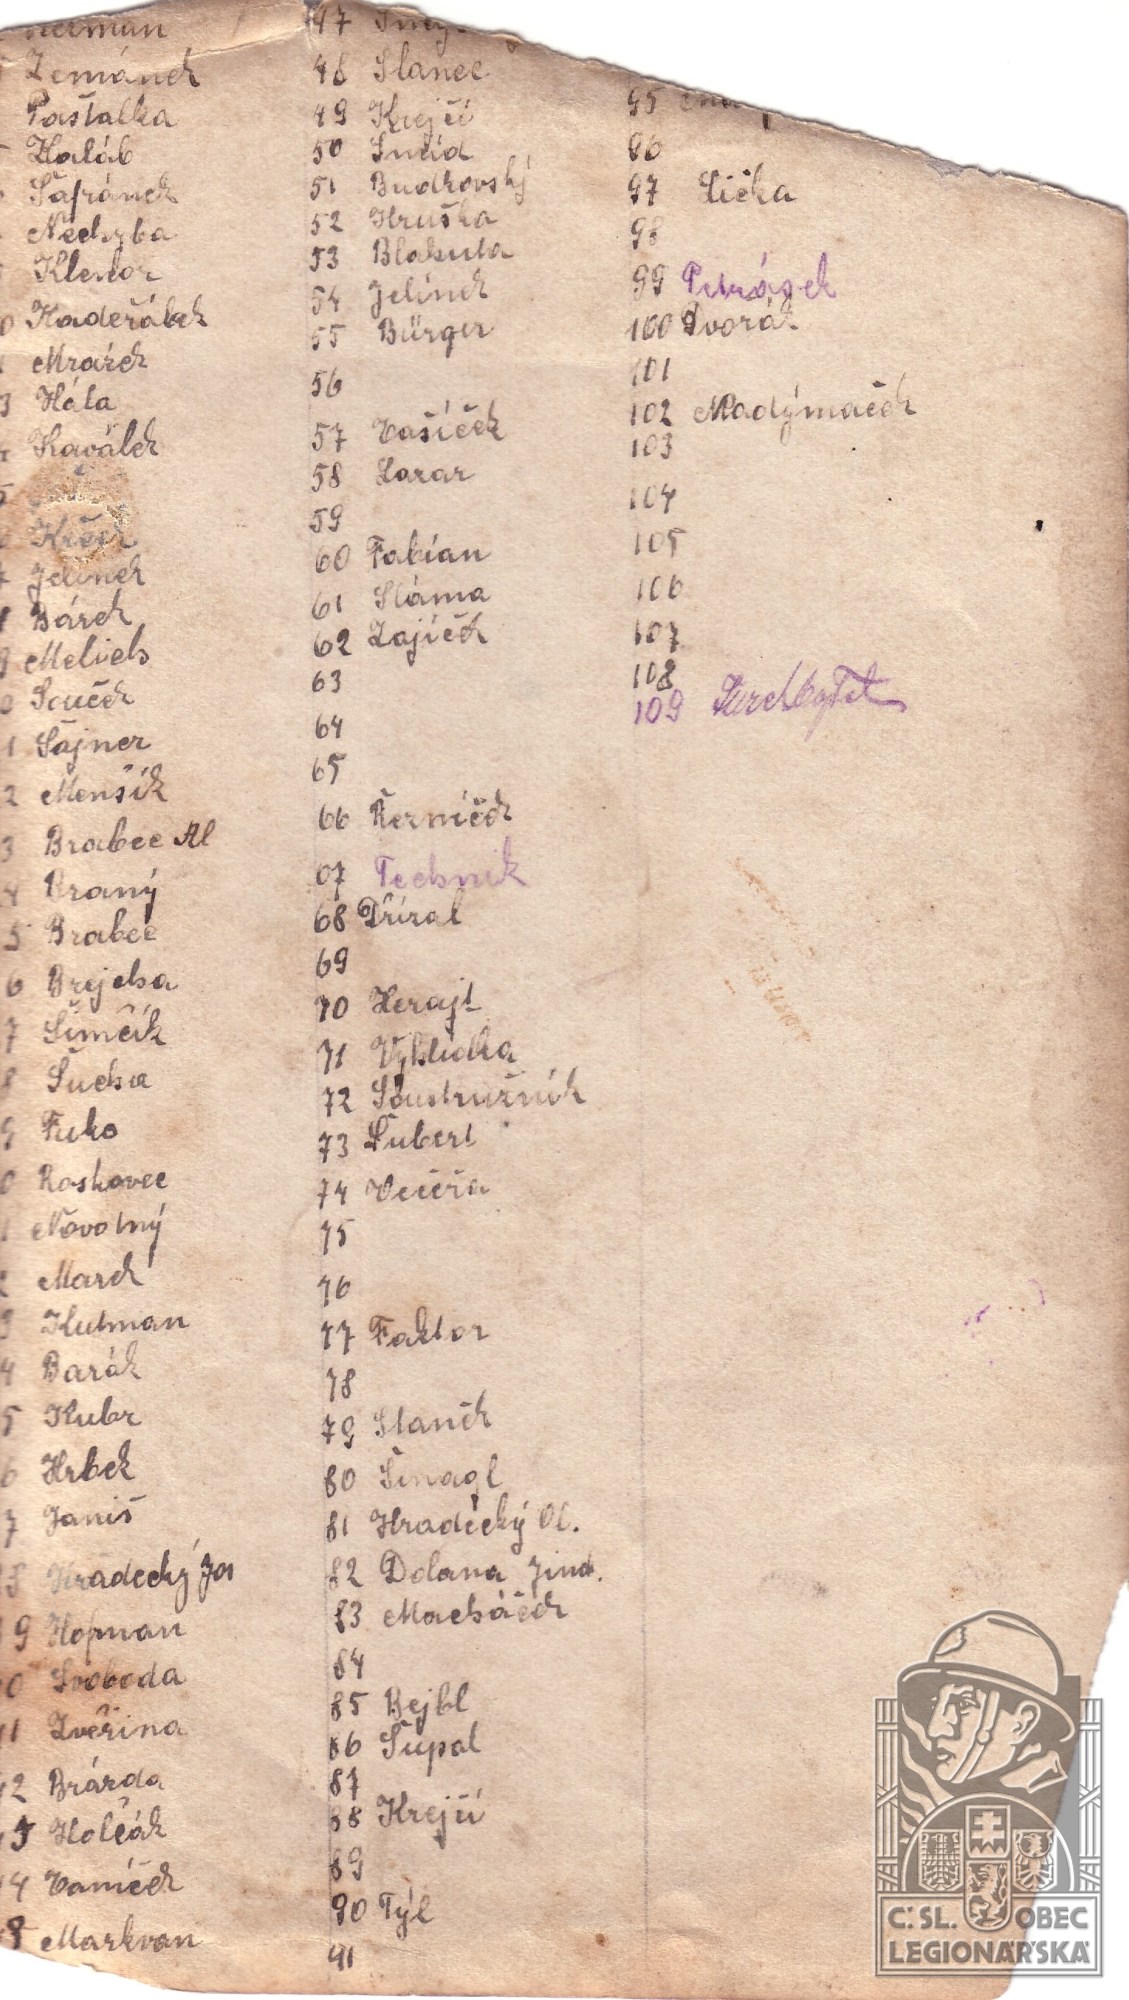 Zemánek
Paštalka
Haláb
Šafránek
Nechyba
Klenor
0 Kadeřábek
1 Mrázek
3 Háta
Kaválek
5
Jelinek
Bárek
Melich
0 Souček
1 Šajner
2 Menšík
3 Brabec Al
4 Braný
5 Brabec
6 Brejcha
7 Šimčík
8 Sucha
9 Fuko
0 Roskovec
1 Novotný
2 Marek
3 Hutman
4 Barák
5 Kubr
6 Hrbek
7 Janiš
8 Hradecký Jos
9 Hofman
0 Svoboda
1 Zvěřina
2 Brázda
3 Holčák
4 Vaníček
5 Markvan
47
48 Slanec
49 Krejčí
50
51 Budkovský
52 Hruška
53 Blahuta
54 Jelinek
55 Bürger
56
57 Vašíček
58 Lazar
59
60 Fabian
61 Sláma
62 Zajíček
63
64
65
66 Řezníček
67 Technik
68 Dřízal
69
70 Herajt
71 Vyhlídka
72 Soustružník
73 Šubert
74 Večeřa
75
76
77 Faktor
78
79 Staněk
80 Šnagl
81 Hradecký Ol.
82 Dolana Jind.
83 Macháček
84
85 Bejbl
86 Šupal
87
88 Krejčí
89
90 Týl
91
95
96
97 Lička
98
99 Petrásek
100 Dvořák
101
102 Madýmaček
103
104
105
106
107
108
109
Č. SL. OBEC
LEGIONÁŘSKÁ